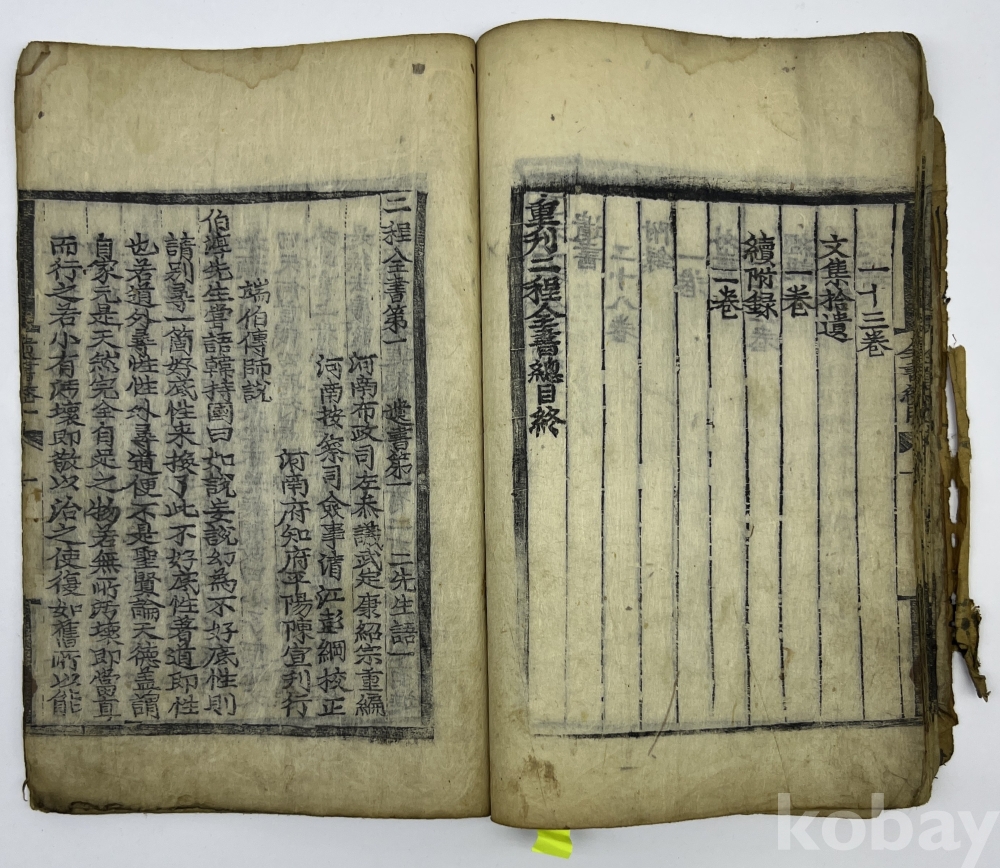 一十三卷
文集拾遺
一卷
續附錄
二卷
重刊二程全書總目終
二程全書第一 遺書第一 二先生語一
河南布政司左叅議武定康紹宗重編
河南按察司僉事清江彭綱校正
河南府知府平陽陳宣刊行
端伯傳師說
伯淳先生嘗語韓持國曰如說妄說幻為不好底性則
請别尋一箇好底性來換了此不好底性著道即性
也若道外尋性性外尋道便不是聖賢論天德盖謂
自家元是天然完全自足之物若無所汚壞即當直
而行之若小有汚壞即敬以治之使復如舊所以能
kobay